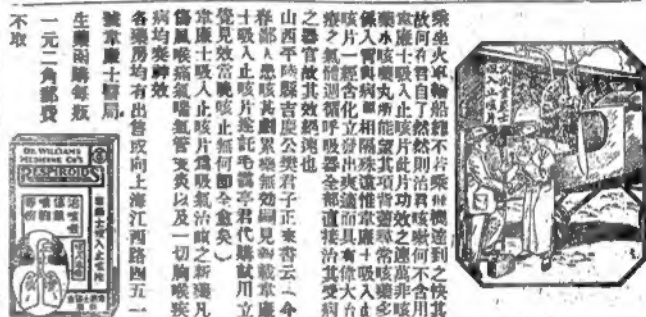 乘坐火車輪船縱不若乘飛機達到之快其
故何在君自了然然則治君咳嗽何不含用
韋廉士吸入止咳片此片功效之速萬非咳
藥水咳藥丸所能望其項背蓋尋常咳藥多
係入胃與病源相隔殊遠惟韋廉士吸入止
咳片一經含化立發出爽適而具有偉大治
療之氣體迴循呼吸器全部直接治其受病
之器官故其效絕速也
山西平陸縣吉慶公樊君子正來書云(今
春鄙人患咳甚劇累藥無效嗣見報載韋廉
士吸入止咳片遂託毛靄亭君代購試用立
覺見效當晚咳止無何即全愈矣)
韋廉士吸入止咳片爲吸氣治咳之新藥凡
傷風喉痛氣喘氣管支炎以及一切胸喉疾
病均奏神效
各藥房均有出售或向上海江西路四五一
號韋廉士醫局
生藥函購每瓶
一元二角郵費
不取
韋廉士
吸入止咳片
DR. WILLIAMS
MEDICINE CO'S
RESPIROIDS